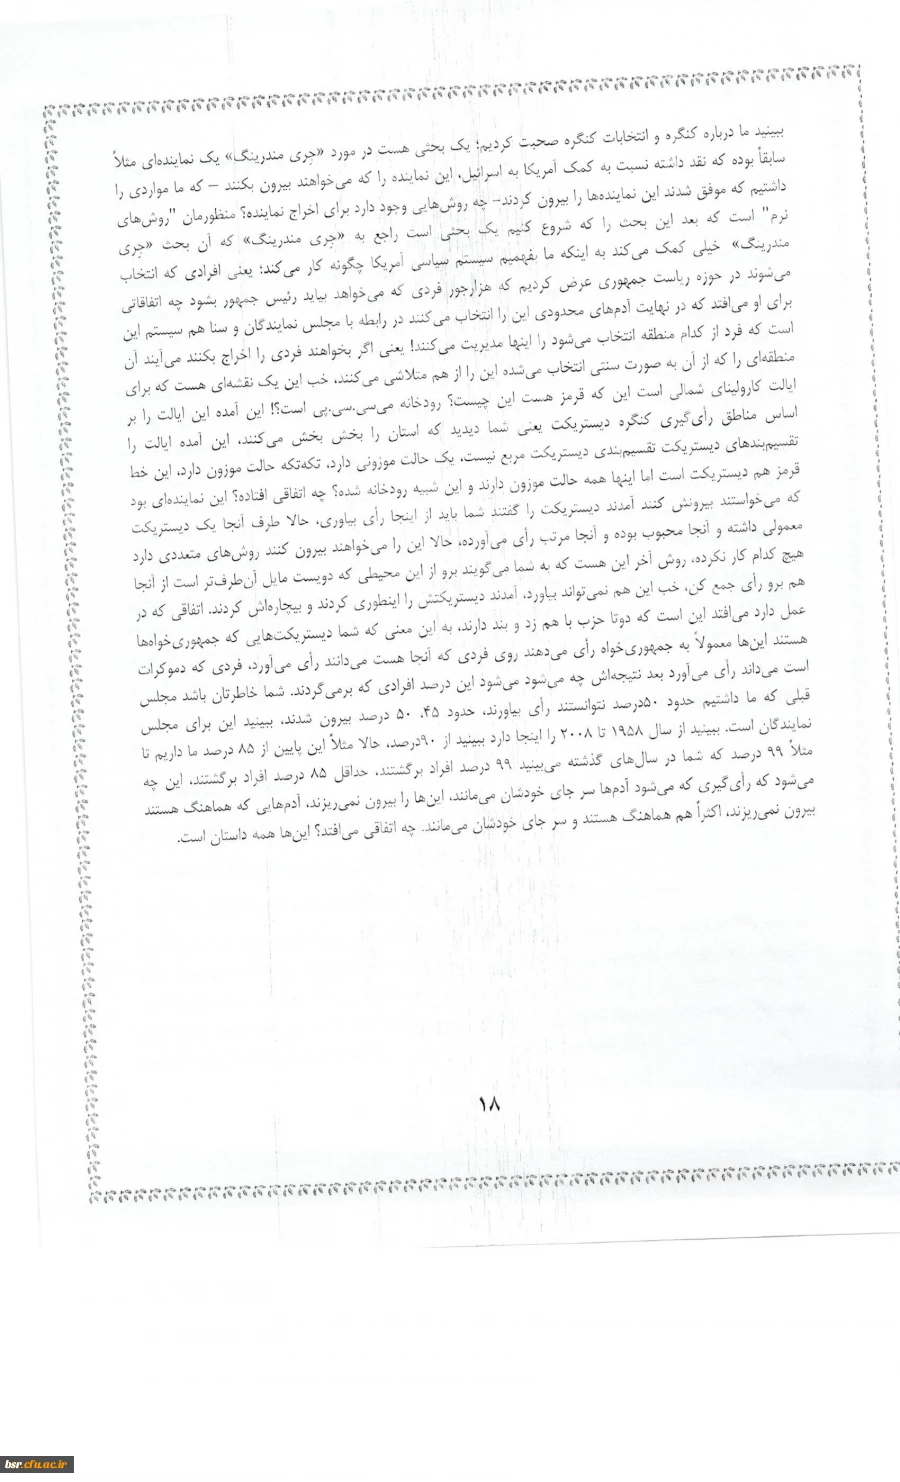 ببینید ما درباره کنگره و انتخابات کنگره صحبت کردیم؛ یک بحثی هست در مورد «جِری مندرینگ» یک نماینده‌ای مثلاً
سابقاً بوده که نقد داشته نسبت به کمک آمریکا به اسرائیل، این نماینده را که می‌خواهند بیرون بکنند – که ما مواردی را
داشتیم که موفق شدند این نماینده‌ها را بیرون کردند- چه روش‌هایی وجود دارد برای اخراج نماینده؟ منظورمان "روش‌های
نرم" است که بعد این بحث را که شروع کنیم یک بحثی است راجع به «جِری مندرینگ» که آن بحث «جِری
مندرینگ» خیلی کمک می‌کند به اینکه ما بفهمیم سیستم سیاسی آمریکا چگونه کار می‌کند؛ یعنی افرادی که انتخاب
می‌شوند در حوزه ریاست جمهوری عرض کردیم که هزارجور فردی که می‌خواهد بیاید رئیس جمهور بشود چه اتفاقاتی
برای او می‌افتد که در نهایت آدم‌های محدودی این را انتخاب می‌کنند در رابطه با مجلس نمایندگان و سنا هم سیستم این
است که فرد از کدام منطقه انتخاب می‌شود را اینها مدیریت می‌کنند! یعنی اگر بخواهند فردی را اخراج بکنند می‌آیند آن
منطقه‌ای را که از آن به صورت سنتی انتخاب می‌شده این را از هم متلاشی می‌کنند، خب این یک نقشه‌ای هست که برای
ایالت کارولینای شمالی است این که قرمز هست این چیست؟ رودخانه می‌سی.سی.پی است؟! این آمده این ایالت را بر
اساس مناطق رأی‌گیری کنگره دیستریکت یعنی شما دیدید که استان را بخش بخش می‌کنند، این آمده ایالت را
تقسیم‌بندهای دیستریکت تقسیم‌بندی دیستریکت مربع نیست، یک حالت موزونی دارد، تکه‌تکه حالت موزون دارد، این خط
قرمز هم دیستریکت است اما اینها همه حالت موزون دارند و این شبیه رودخانه شده؟ چه اتفاقی افتاده؟ این نماینده‌ای بود
که می‌خواستند بیرونش کنند آمدند دیستریکت را گفتند شما باید از اینجا رأی بیاوری، حالا طرف آنجا یک دیستریکت
معمولی داشته و آنجا محبوب بوده و آنجا مرتب رأی می‌آورده، حالا این را می‌خواهند بیرون کنند روش‌های متعددی دارد
هیچ کدام کار نکرده، روش آخر این هست که به شما می‌گویند برو از این محیطی که دویست مایل آن‌طرف‌تر است از آنجا
هم برو رأی جمع کن، خب این هم نمی‌تواند بیاورد، آمدند دیستریکتش را اینطوری کردند و بیچاره‌اش کردند. اتفاقی که در
عمل دارد می‌افتد این است که دوتا حزب با هم زد و بند دارند، به این معنی که شما دیستریکت‌هایی که جمهوری‌خواه‌ها
هستند این‌ها معمولاً به جمهوری‌خواه رأی می‌دهند روی فردی که آنجا هست می‌دانند رأی می‌آورد، فردی که دموکرات
است می‌داند رأی می‌آورد بعد نتیجه‌اش چه می‌شود می‌شود این درصد افرادی که برمی‌گردند. شما خاطرتان باشد مجلس
قبلی که ما داشتیم حدود ۵۰درصد نتوانستند رأی بیاورند، حدود ۴۵، ۵۰ درصد بیرون شدند، ببینید این برای مجلس
نمایندگان است. ببینید از سال ۱۹۵۸ تا ۲۰۰۸ را اینجا دارد ببینید از ۹۰درصد، حالا مثلاً این پایین از ۸۵ درصد ما داریم تا
مثلاً ۹۹ درصد که شما در سال‌های گذشته می‌بینید ۹۹ درصد افراد برگشتند، حداقل ۸۵ درصد افراد برگشتند، این چه
می‌شود که رأی‌گیری که می‌شود آدم‌ها سر جای خودشان می‌مانند، این‌ها را بیرون نمی‌ریزند، آدم‌هایی که هماهنگ هستند
بیرون نمی‌ریزند، اکثراً هم هماهنگ هستند و سر جای خودشان می‌مانند. چه اتفاقی می‌افتد؟ این‌ها همه داستان است.
۱۸
bsr.cfu.ac.ir